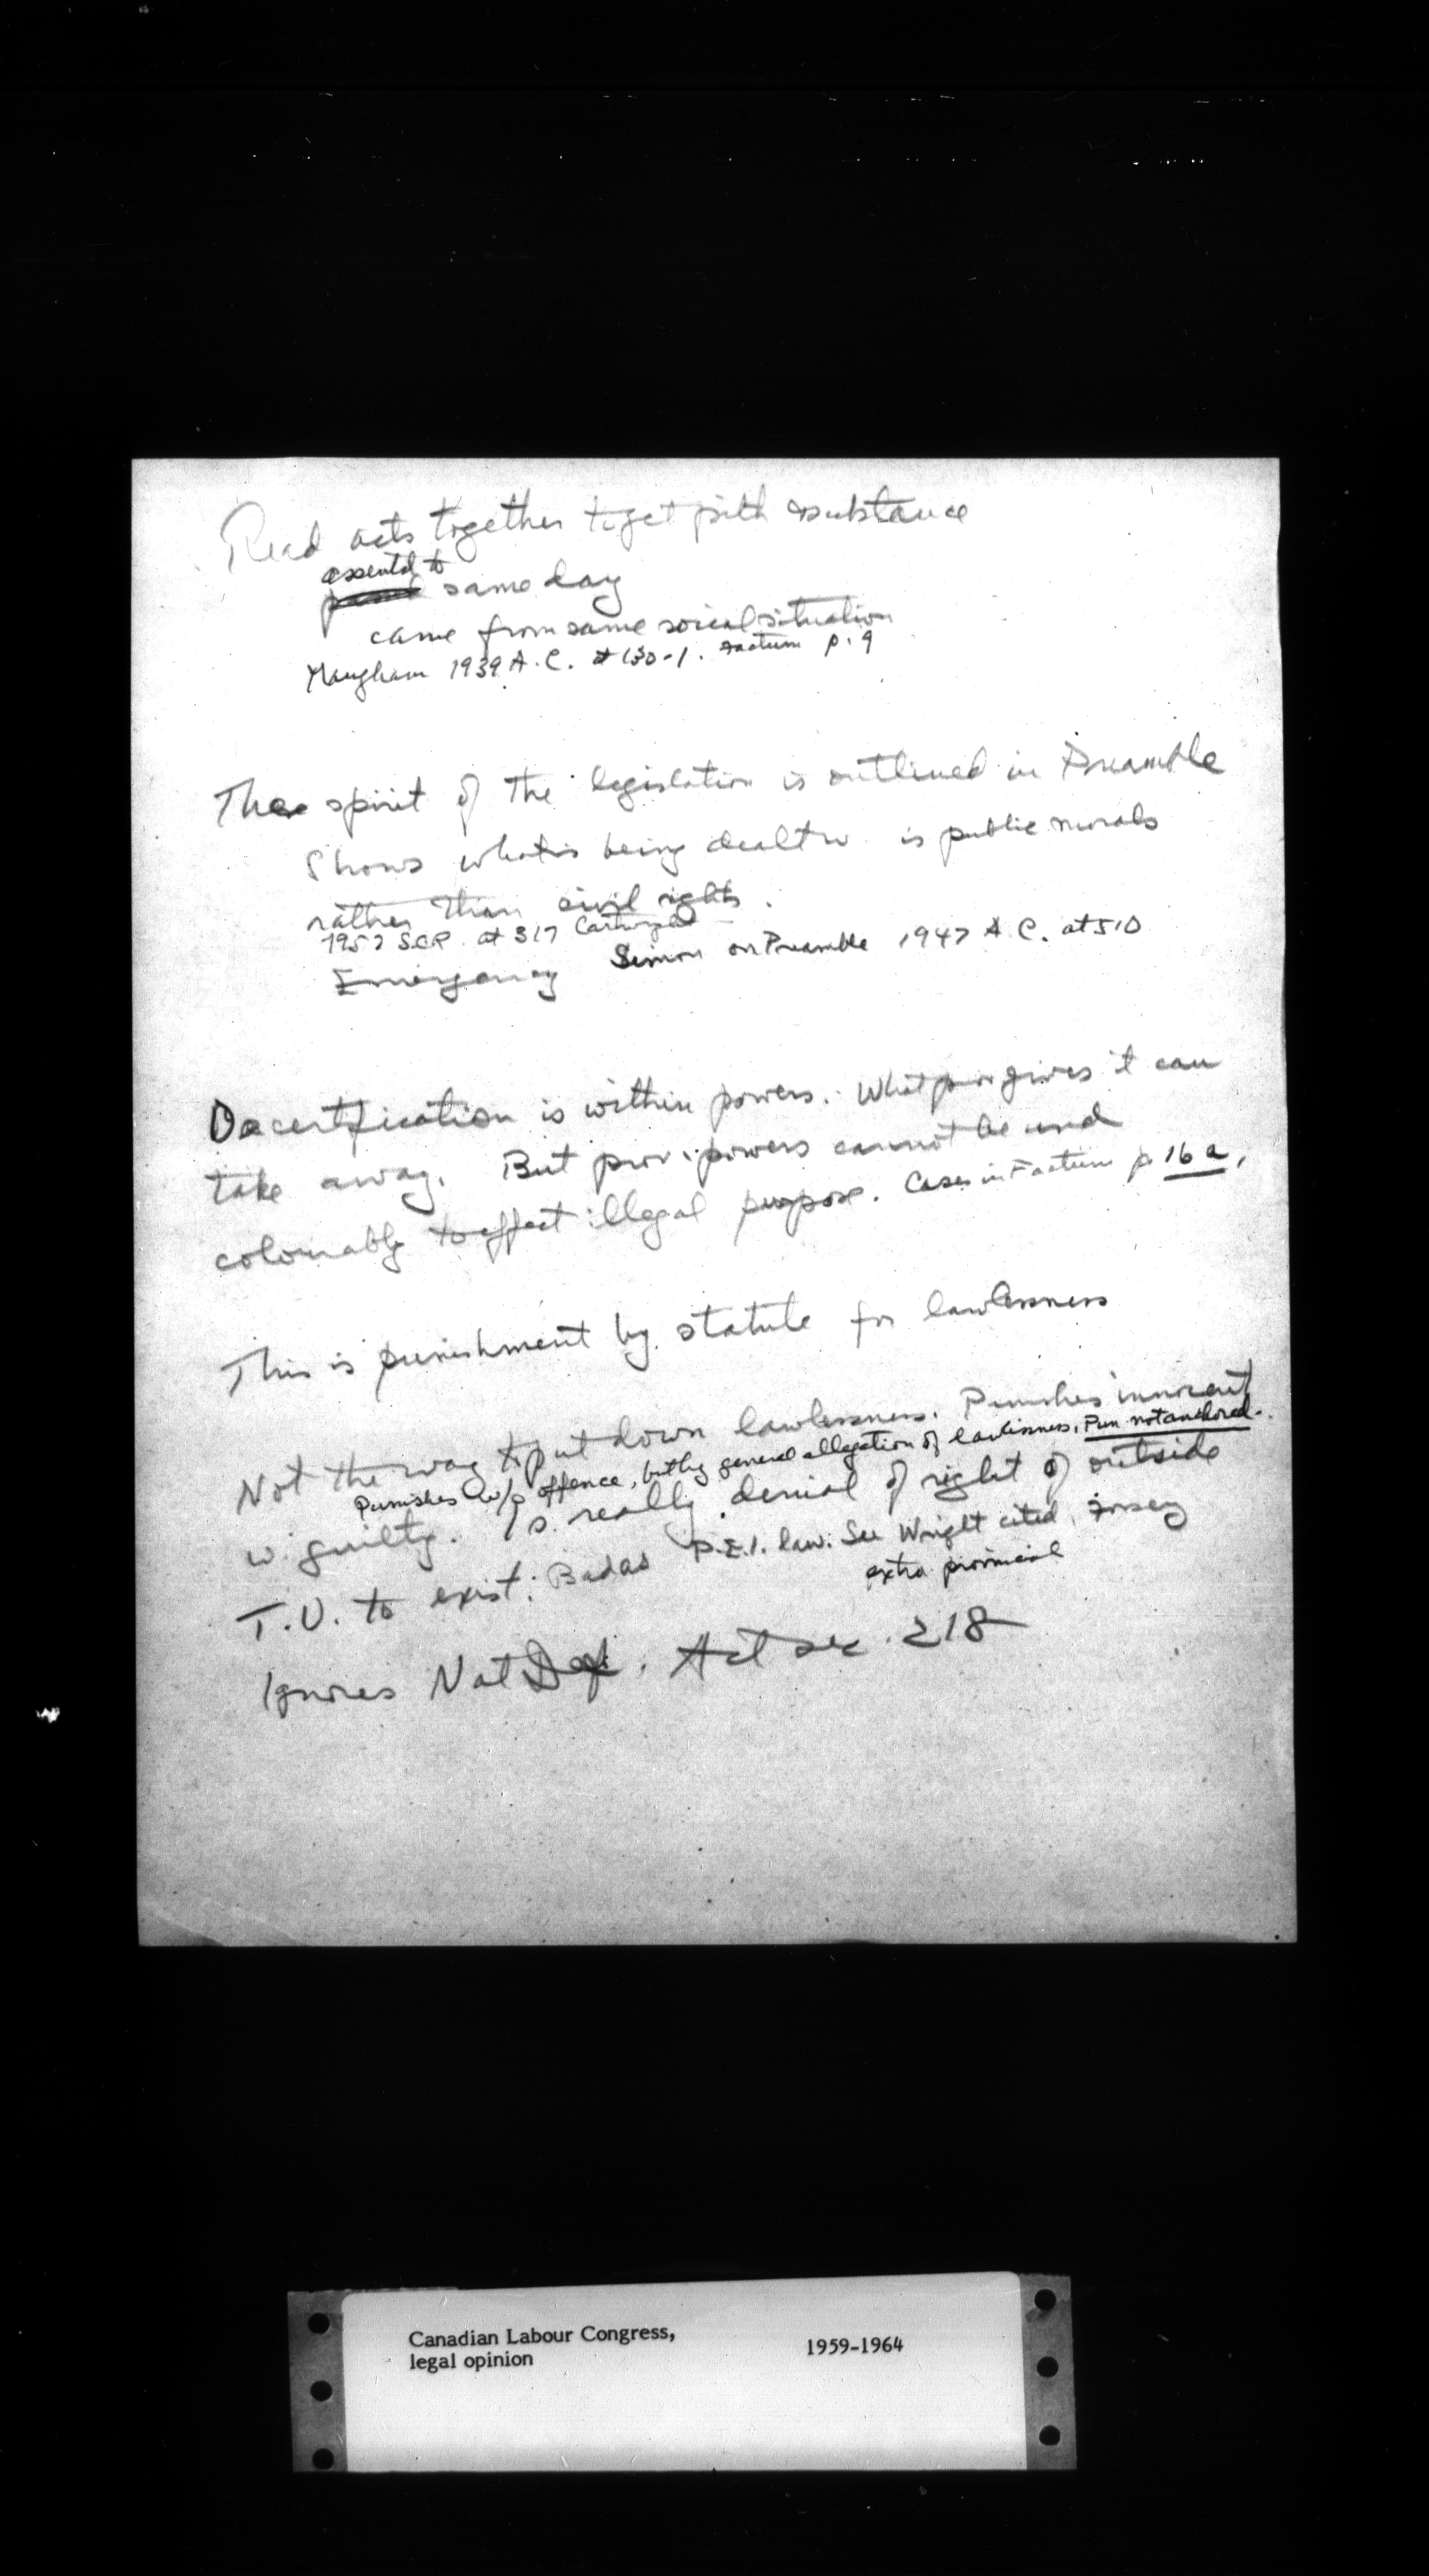 Read acts together to get pith substance
assented to
same day
came from same social situation
Maugham 1939 A.C. at 130-1. Factum p. 9
The spirit of the legislation is outlined in Preamble
Shows what is being dealt w. is public morals
rather than civil rights.
1957 S.C.R. at 317 Cartwright
Emergency Simon on Preamble 1947 A.C. at 510
Decertification is within powers. What prov gives it can
take away. But prov. powers cannot be used
colourably to effect illegal purpose. Cases in Factum p. 16a,
This is punishment by statute for lawlessness
Not the way to put down lawlessness. Punishes innocent
Punishes w/o offence, but by general allegation of lawlessness, Pun not anchored.
w. guilty. Is really denial of right of outside
T.U. to exist. Bad as P.E.I. law. See Wright cited, Forsey
extra provincial
Ignores Nat Def. Act sec. 218
Canadian Labour Congress, 1959-1964
legal opinion